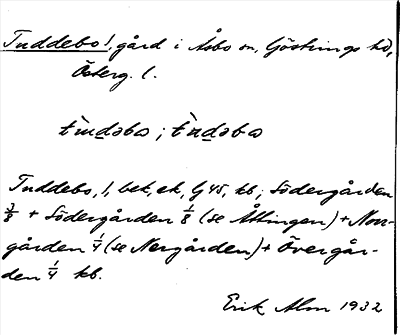 Tuddebo!, gård i Åsbo sn, Göstrings hd,
Österg. l.
Tuddebo, !, bek, ek, G 45, kb; Södergården
3/8 + Södergården 1/8 (se Åttingen) + Norr-
gården 1/4 (se Norgården) + Övergår-
den 1/4 kb.
Erik Alm 1932